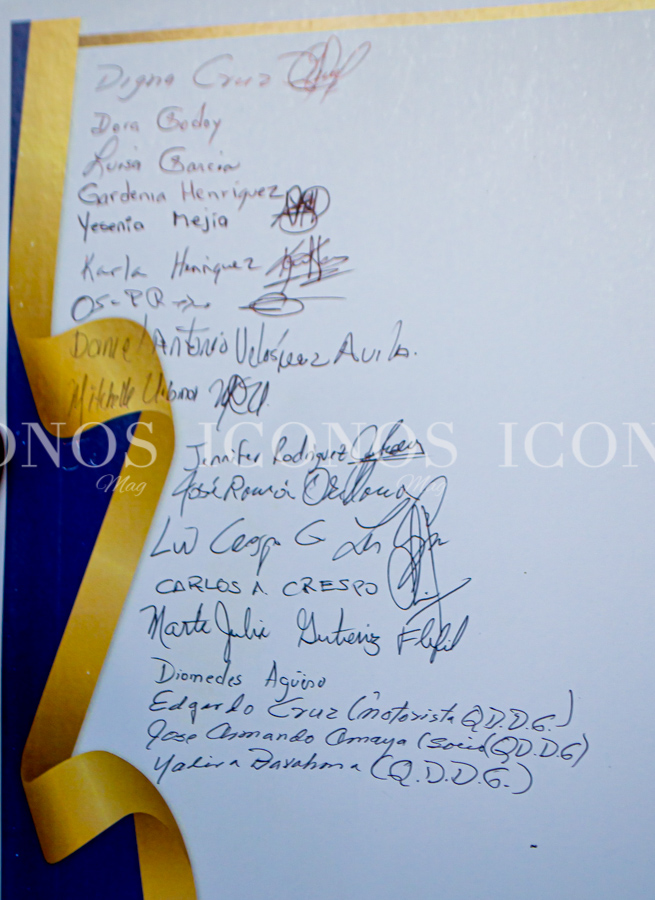 Digna Cruz
Dora Godoy
Luisa Garcia
Gardenia Henriquez
Yesenia Mejia
Karla Henriquez
Daniel Antonio Velásquez Avila.
Mitchelle Urbina
ICONOS ICONOS ICONOS
Mag Mag
Jennifer Rodriguez
José Ramón Orellana
CARLOS A. CRESPO
Marta Julia Gutierrez Flefil
Diomedes Agüero
Edgardo Cruz (motorista Q.D.D.G.)
Jose Armando Amaya (Socio (Q.D.D.G)
Yadira Barahona (Q.D.D.G.)